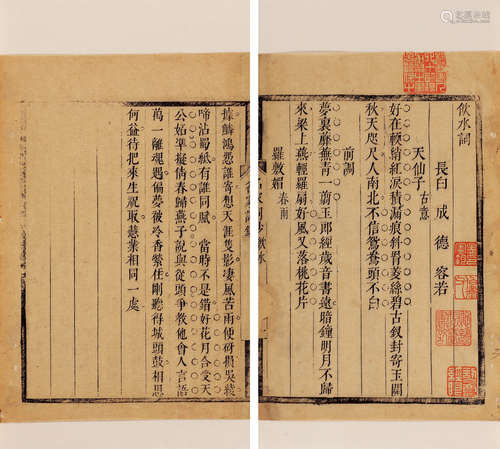 飲水詞
長白 成德 容若
天仙子 古意
好在軟綃紅淚積漏痕斜罥菱絲碧古釵封寄玉關
秋天咫尺人南北不信鴛鴦頭不白
前調
夢裏蘼蕪青一翦玉郎經歲音書遠暗鐘明月不歸
來梁上燕輕羅扇好風又落桃花片
羅敷媚 春
鱗鴻憑誰寄想天涯隻影凄風苦雨便砑損吳綾
啼沾蜀紙有誰同賦 當時不是錯好花月合受天
公妒準擬倩春歸燕子說與從頭爭教他會人言語
萬一離魂遇偏夢彼冷香縈住剛聽得城頭鼓相思
何益待把來生祝取慧業相同一處